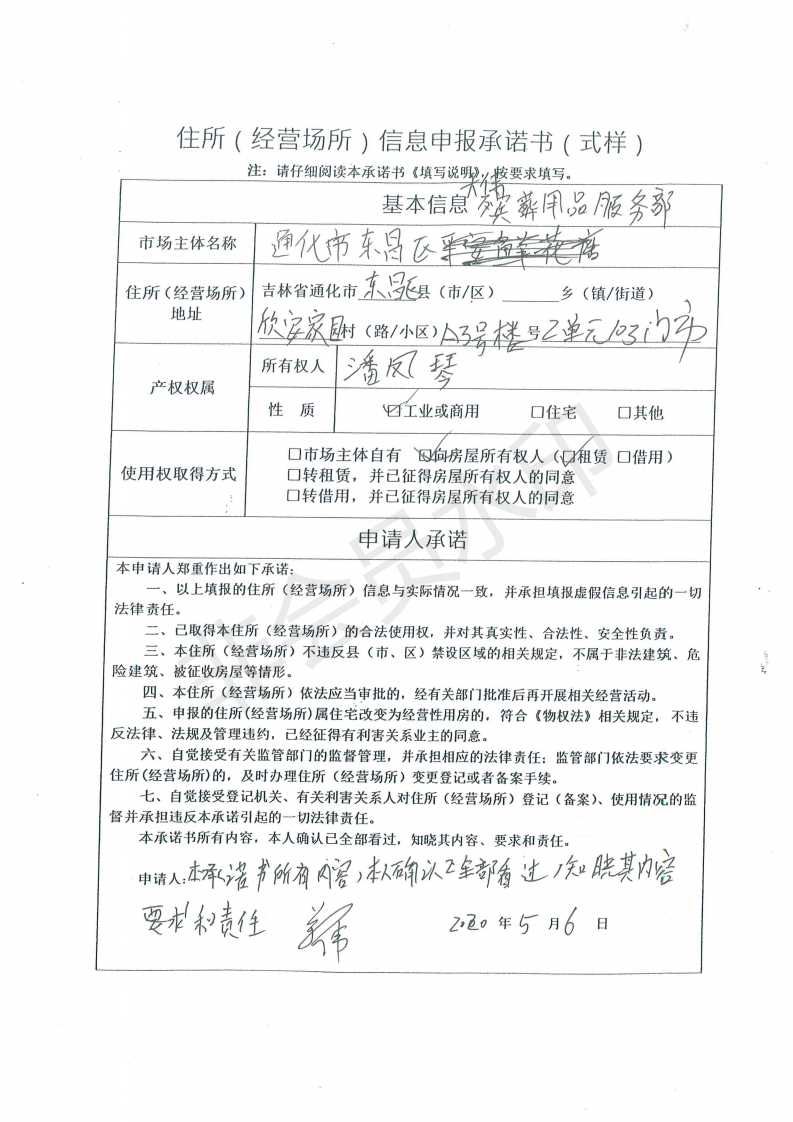 住所（经营场所）信息申报承诺书（式样）
注：请仔细阅读本承诺书《填写说明》，按要求填写。
基本信息 殡葬用品服务部
市场主体名称 通化市东昌区平安鲜花店
住所（经营场所）地址 吉林省通化市东昌区县（市/区）______乡（镇/街道）
欣安家园村（路/小区）A3号楼号2单元103门市
产权权属 所有权人 潘凤琴
性 质 ☑工业或商用 □住宅 □其他
使用权取得方式 □市场主体自有 ☑向房屋所有权人（☑租赁 □借用）
□转租赁，并已征得房屋所有权人的同意
□转借用，并已征得房屋所有权人的同意
申请人承诺
本申请人郑重作出如下承诺：
一、以上填报的住所（经营场所）信息与实际情况一致，并承担填报虚假信息引起的一切
法律责任。
二、已取得本住所（经营场所）的合法使用权，并对其真实性、合法性、安全性负责。
三、本住所（经营场所）不违反县（市、区）禁设区域的相关规定，不属于非法建筑、危
险建筑、被征收房屋等情形。
四、本住所（经营场所）依法应当审批的，经有关部门批准后再开展相关经营活动。
五、申报的住所(经营场所)属住宅改变为经营性用房的，符合《物权法》相关规定，不违
反法律、法规及管理违约，已经征得有利害关系业主的同意。
六、自觉接受有关监管部门的监督管理，并承担相应的法律责任；监管部门依法要求变更
住所(经营场所)的，及时办理住所（经营场所）变更登记或者备案手续。
七、自觉接受登记机关、有关利害关系人对住所（经营场所）登记（备案）、使用情况的监
督并承担违反本承诺引起的一切法律责任。
本承诺书所有内容，本人确认已全部看过，知晓其内容、要求和责任。
申请人：本承诺书所有内容，本人确认已全部看过，知晓其内容
要求和责任 2020年5月6日
非会员水印